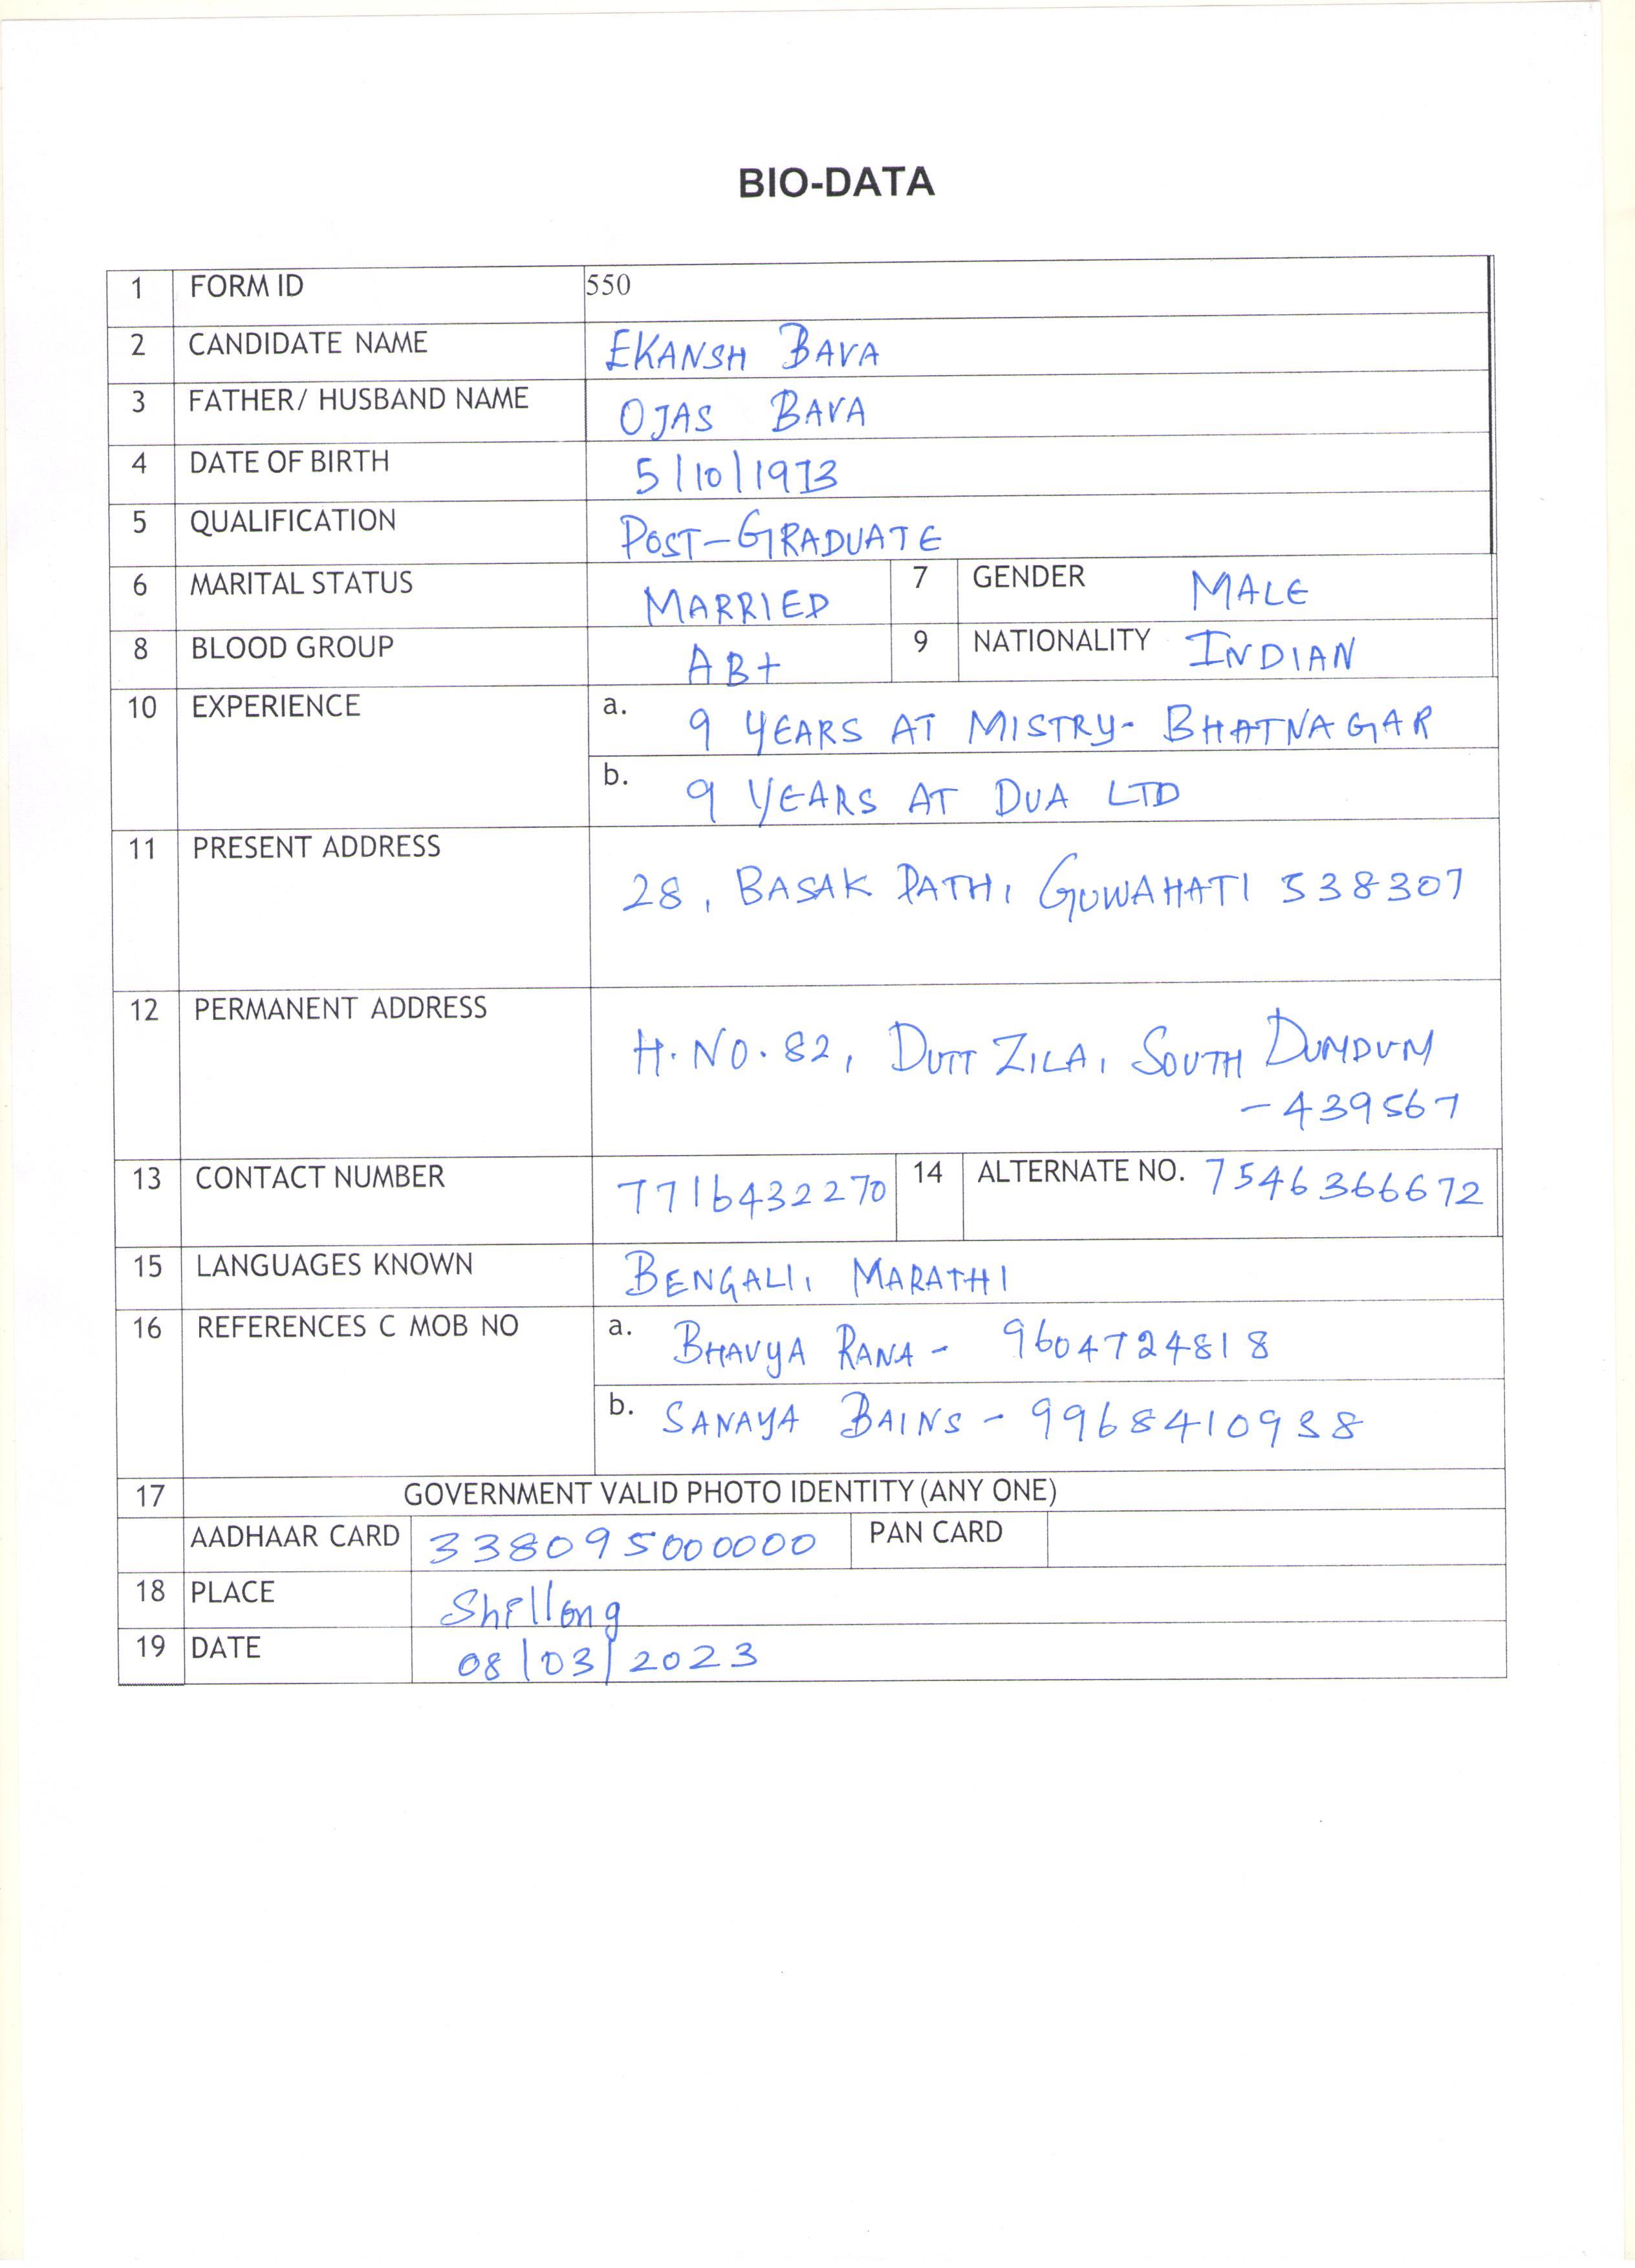 BIO-DATA
1 FORM ID 550
2 CANDIDATE NAME EKANSH BAVA
3 FATHER/ HUSBAND NAME OJAS BAVA
4 DATE OF BIRTH 5/10/1973
5 QUALIFICATION POST-GRADUATE
6 MARITAL STATUS MARRIED 7 GENDER MALE
8 BLOOD GROUP AB+ 9 NATIONALITY INDIAN
10 EXPERIENCE a. 9 YEARS AT MISTRY-BHATNAGAR
b. 9 YEARS AT DUA LTD
11 PRESENT ADDRESS 28, BASAK PATH, GUWAHATI 538307
12 PERMANENT ADDRESS H.NO.82, DUTT ZILA, SOUTH DUMDUM
-439567
13 CONTACT NUMBER 7716432270 14 ALTERNATE NO. 7546366672
15 LANGUAGES KNOWN BENGALI, MARATHI
16 REFERENCES C MOB NO a. BHAVYA RANA - 9604724818
b. SANAYA BAINS - 9968410938
17 GOVERNMENT VALID PHOTO IDENTITY (ANY ONE)
AADHAAR CARD 338095000000 PAN CARD
18 PLACE Shillong
19 DATE 08/03/2023